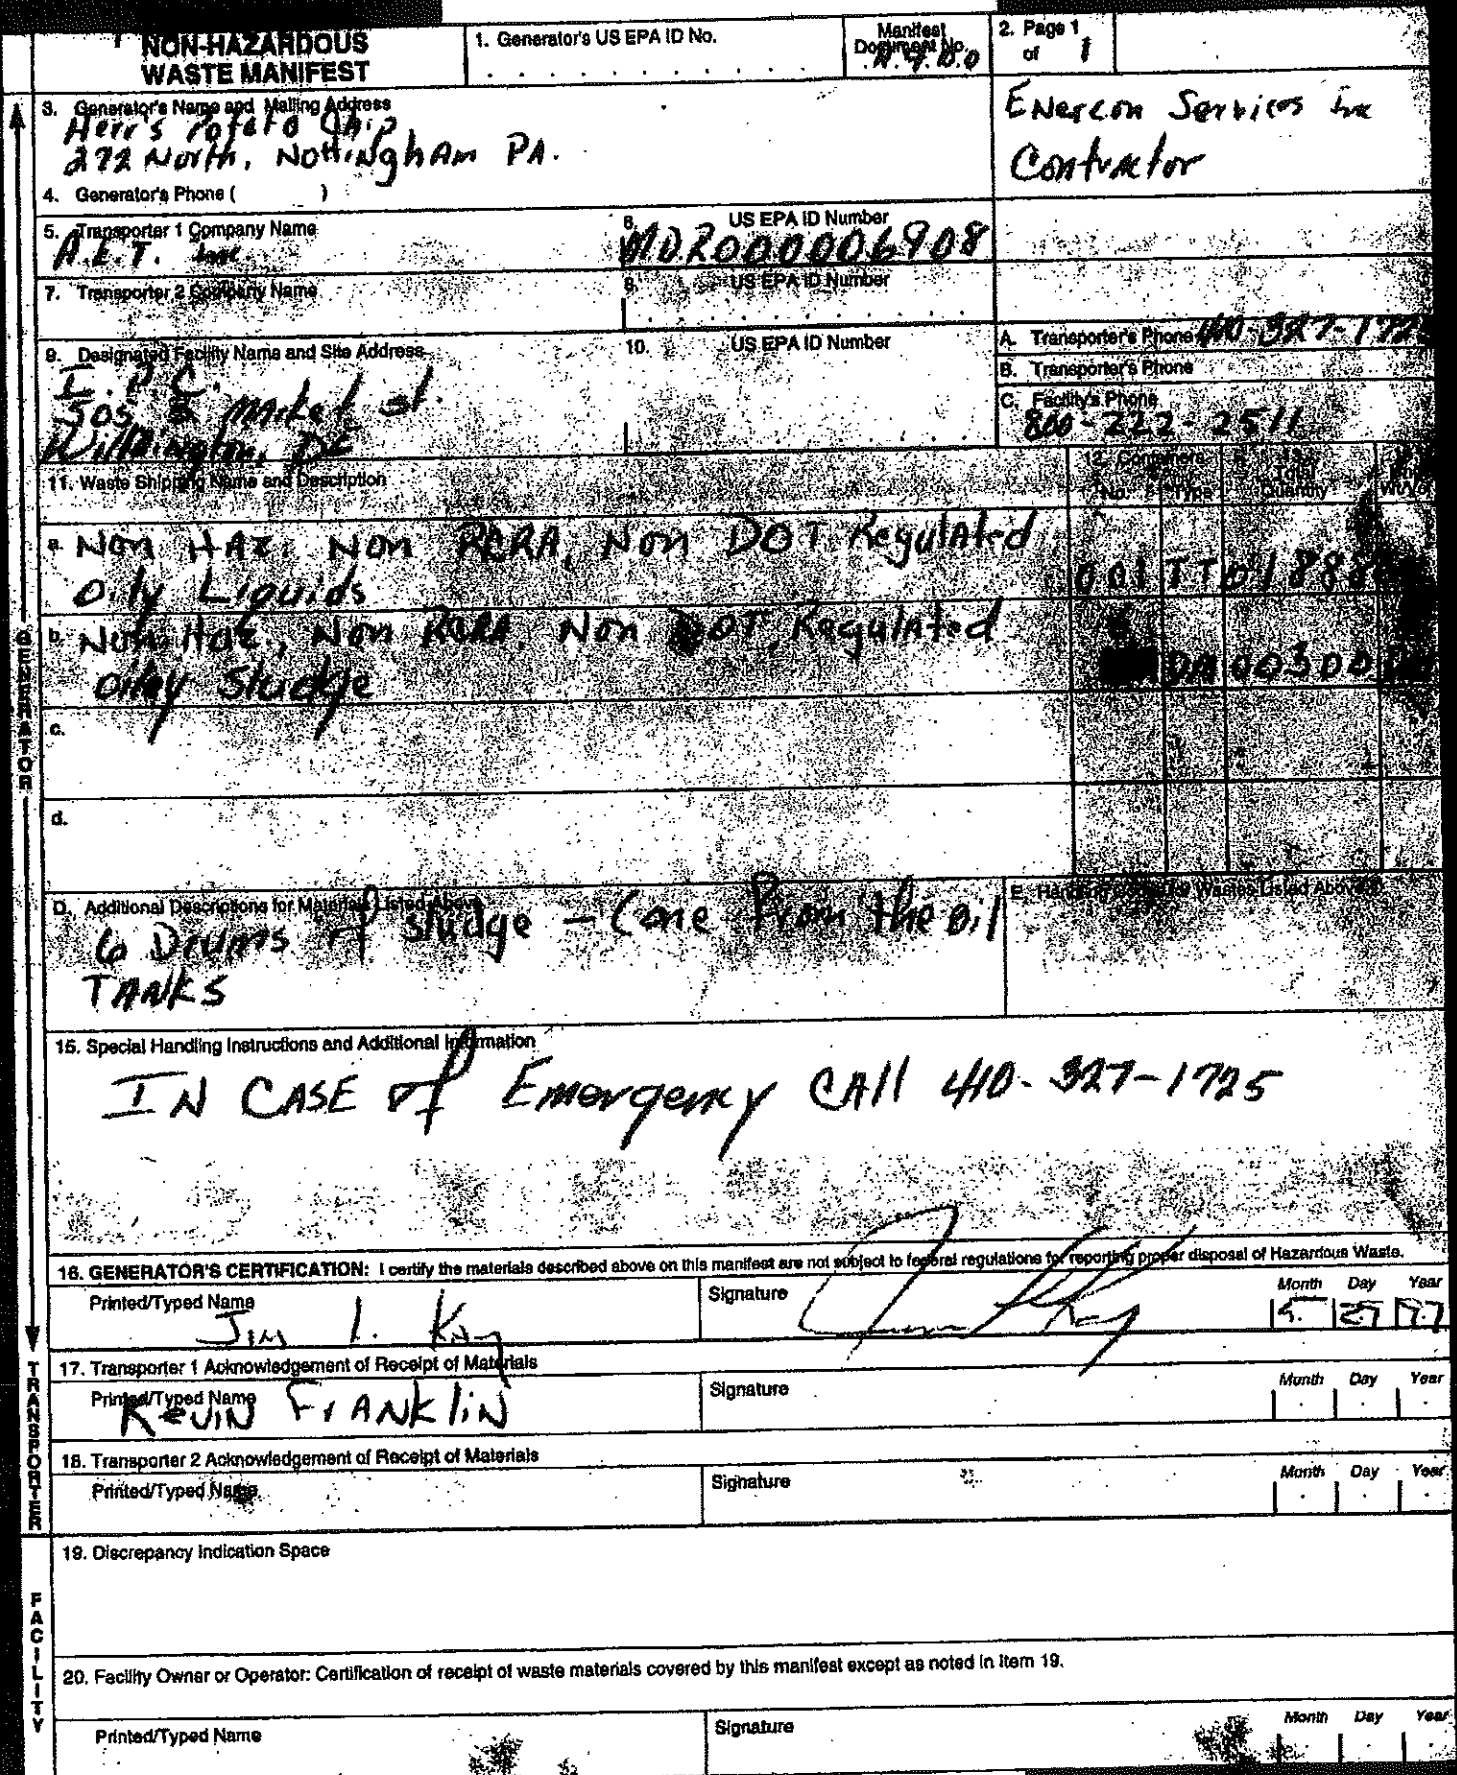 NON-HAZARDOUS
WASTE MANIFEST
1. Generator's US EPA ID No.
Manifest
Document No.
2. Page 1
of 1
3. Generator's Name and Mailing Address
Herr's Potato Chip
272 North, Nottingham PA.
Enercon Services Inc
Contractor
4. Generator's Phone ( )
5. Transporter 1 Company Name
A.E.T. Inc.
6. US EPA ID Number
MDR000006908
7. Transporter 2 Company Name
8. US EPA ID Number
9. Designated Facility Name and Site Address
I.P.C.
505 S Market st.
Wilmington, DE
10. US EPA ID Number
A. Transporter's Phone 410-327-172
B. Transporter's Phone
C. Facility's Phone
800-222-2511
11. Waste Shipping Name and Description
12. Containers
No. Type
Total
Quantity
Wt/Vol
a. Non HAZ. Non RCRA, Non DOT Regulated
Oily Liquids
001 TT
b. Non Haz, Non RCRA, Non DOT Regulated
oiley Sludge
00300
c.
d.
D. Additional Descriptions for Materials Listed Above
6 Drums of sludge - Came From the oil
TANKS
E. Handling Codes for Wastes Listed Above
15. Special Handling Instructions and Additional Information
IN CASE of Emergency CAll 410-327-1725
16. GENERATOR'S CERTIFICATION: I certify the materials described above on this manifest are not subject to federal regulations for reporting proper disposal of Hazardous Waste.
Printed/Typed Name
Signature
Month Day Year
5 27 97
17. Transporter 1 Acknowledgement of Receipt of Materials
Printed/Typed Name
Kevin FrANKliN
Signature
Month Day Year
18. Transporter 2 Acknowledgement of Receipt of Materials
Printed/Typed Name
Signature
Month Day Year
19. Discrepancy Indication Space
20. Facility Owner or Operator: Certification of receipt of waste materials covered by this manifest except as noted in Item 19.
Printed/Typed Name
Signature
Month Day Year
GENERATOR
TRANSPORTER
FACILITY